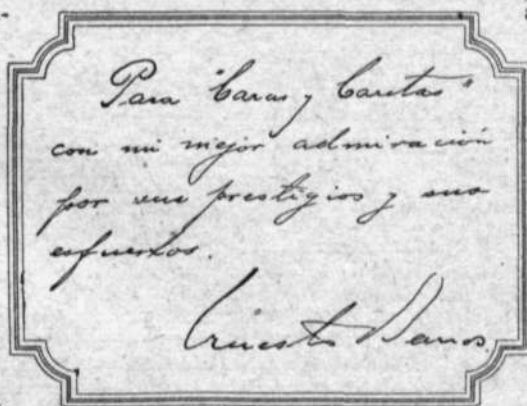 Para "Caras y Caretas"
con mi mejor admiración
por sus prestigios y sus
esfuerzos.
Ernesto Barros